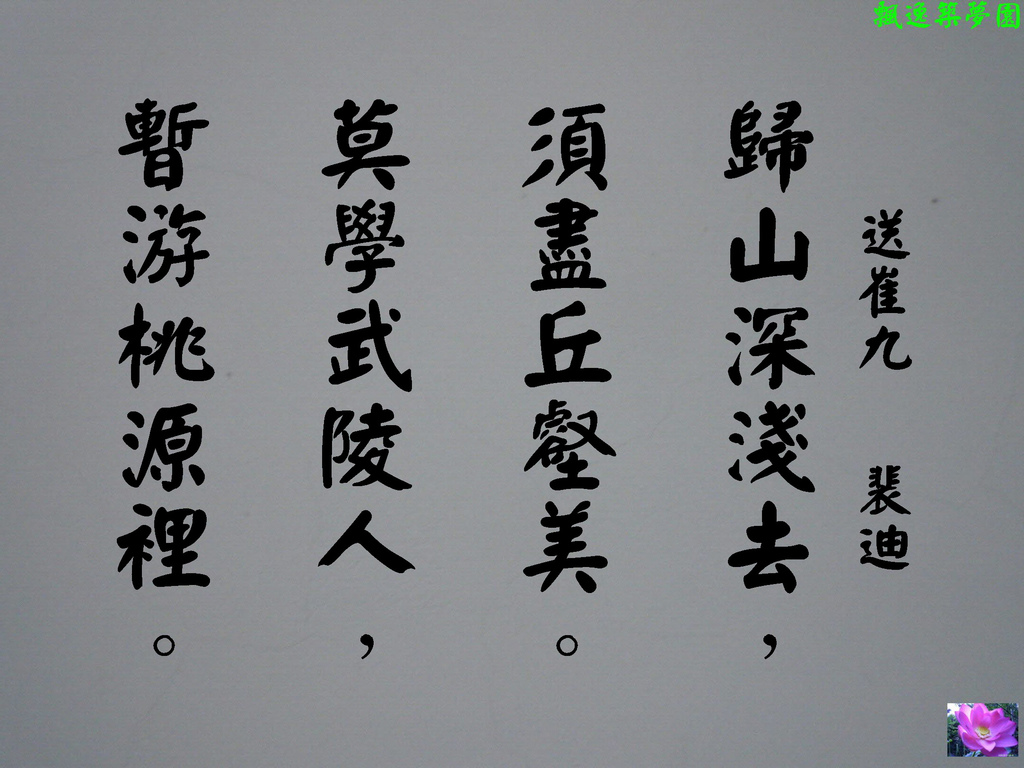 飄逸築夢園
送崔九 裴迪
歸山深淺去，
須盡丘壑美。
莫學武陵人，
暫游桃源裡。